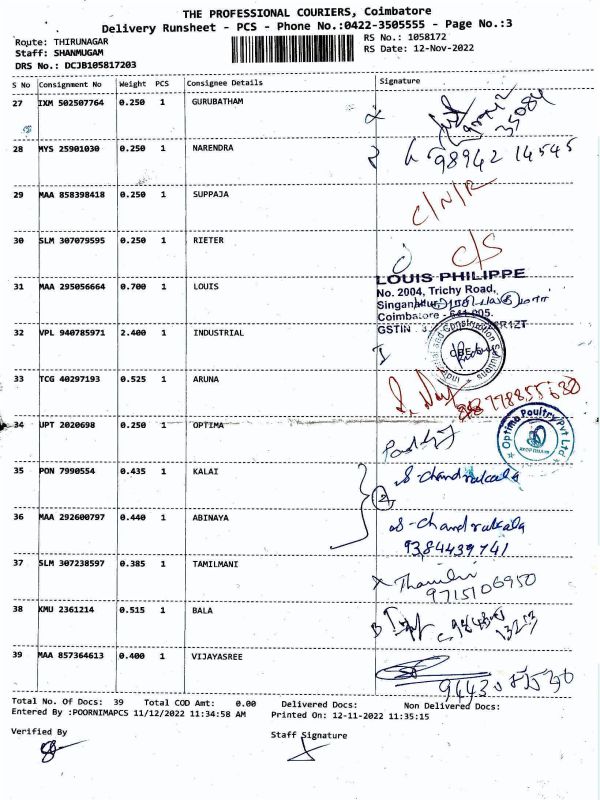 THE PROFESSIONAL COURIERS, Coimbatore
Delivery Runsheet - PCS - Phone No.:0422-3505555 - Page No.:3
Route: THIRUNAGAR RS No.: 1058172
Staff: SHANMUGAM RS Date: 12-Nov-2022
DRS No.: DCJB105817203
S No Consignment No Weight PCS Consignee Details Signature
27 IXM 502507764 0.250 1 GURUBATHAM
35084
28 MYS 25901030 0.250 1 NARENDRA 98942 14545
29 MAA 858398418 0.250 1 SUPPAJA C/N/R
30 SLM 307079595 0.250 1 RIETER C/S
31 MAA 295056664 0.700 1 LOUIS LOUIS PHILIPPE
No. 2004, Trichy Road,
Coimbatore - 641 005.
GSTIN
32 VPL 940785971 2.400 1 INDUSTRIAL
CBE
33 TCG 40297193 0.525 1 ARUNA
34 UPT 2020698 0.250 1 OPTIMA Optima Poultry Pvt Ltd
35 PON 7990554 0.435 1 KALAI S-chandralcala
2
36 MAA 292600797 0.440 1 ABINAYA S-chandralcala
9384439741
37 SLM 307238597 0.385 1 TAMILMANI
9715106950
38 KMU 2361214 0.515 1 BALA
39 MAA 857364613 0.400 1 VIJAYASREE
Total No. Of Docs: 39 Total COD Amt: 0.00 Delivered Docs: Non Delivered Docs:
Entered By :POORNIMAPCS 11/12/2022 11:34:58 AM Printed On: 12-11-2022 11:35:15
Verified By Staff Signature